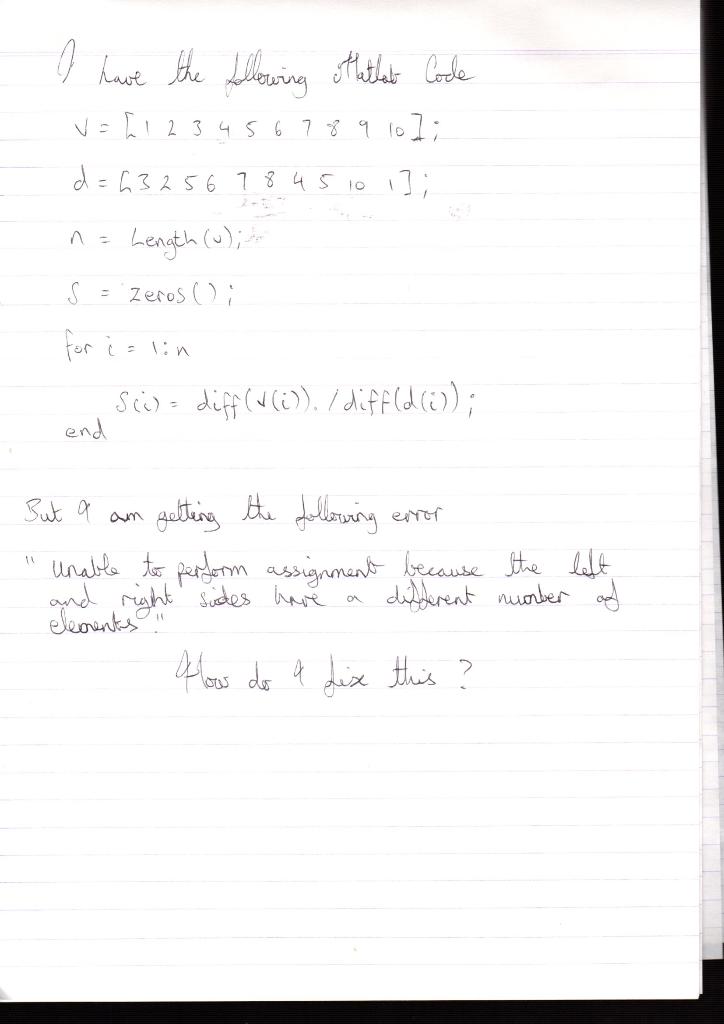 I have the following Matlab Code
v = [1 2 3 4 5 6 7 8 9 10];
d = [3 2 5 6 7 8 4 5 10 1];
n = Length(v);
S = zeros();
for i = 1:n
S(i) = diff(v(i))./diff(d(i));
end
But I am getting the following error
"Unable to perform assignment because the left
and right sides have a different number of
elements."
How do I fix this?